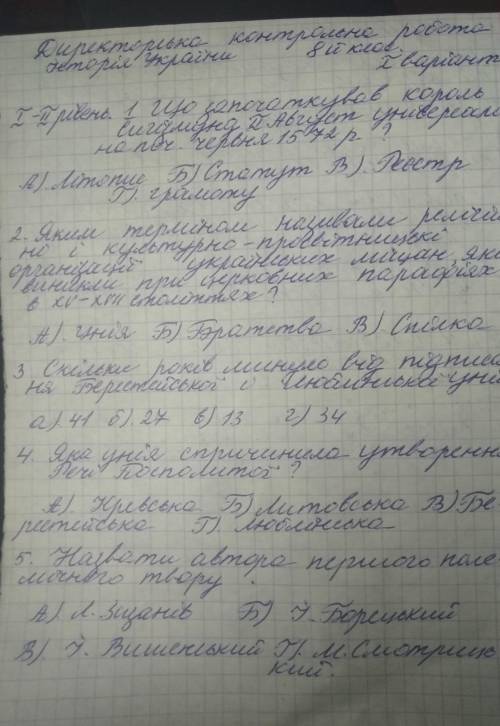 Директорська контрольна робота
Історія України 8-й клас
I варіант
I-II рівень. 1 Що започаткував король
Сигізмунд II Август універсалом
на поч. червня 1572 р ?
А). Літопис Б) Статут В). Реєстр
Г). грамоту
2. Яким терміном називали релігій
ні і культурно-просвітницькі
організації українських міщан, які
виникли при церковних парафіях
в XV-XVII століттях?
А). Унія Б) Братства В). Спілка
3 Скільки років минуло від підписа
ня Берестейської і Люблінської унії
а). 41 б). 27 в) 13 г) 34
4. Яка унія спричинила утворення
Речі Посполитої ?
А). Кревська Б) Литовська В) Бе
рестейська Г). Люблінська
5. Назвати автора першого поле
мічного твору .
А). Л. Зизаній Б) Й. Борецький
В). І. Вишенський Г). М. Смотриць
кий.